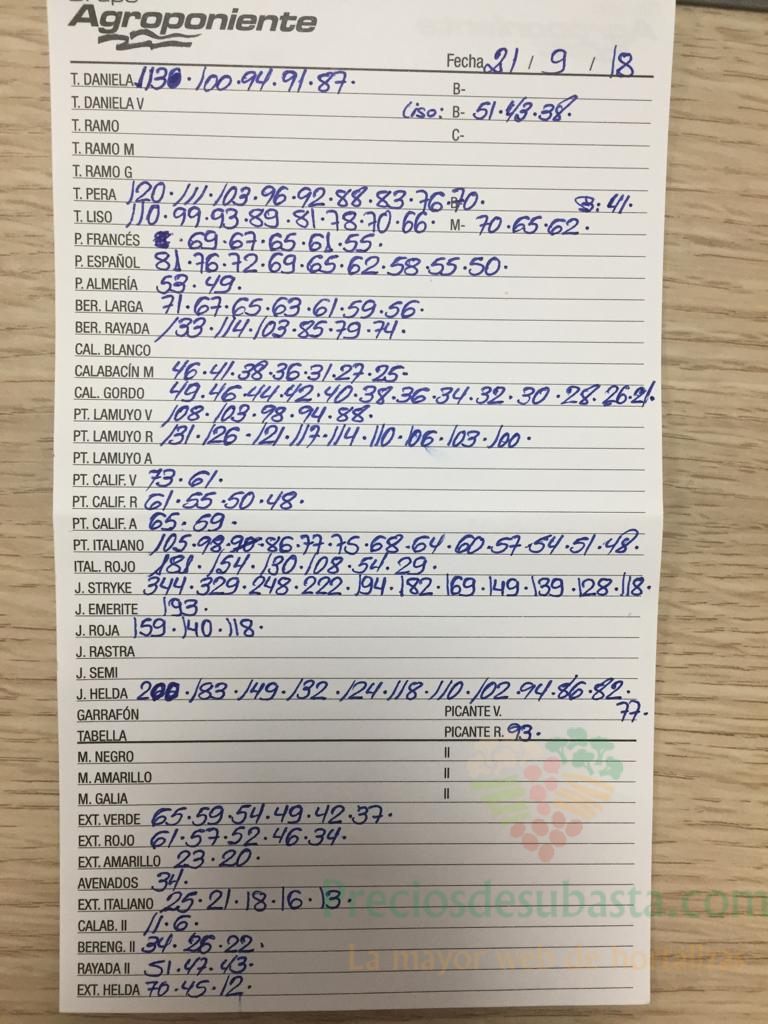 Grupo
Agroponiente
Fecha 21 / 9 / 18
T. DANIELA 130 · 100 · 94 · 91 · 87 · B-
T. DANIELA V Liso: B- 51 · 43 · 38 ·
T. RAMO C-
T. RAMO M
T. RAMO G
T. PERA 120 · 111 · 103 · 96 · 92 · 88 · 83 · 76 · 70 · B: 41 ·
T. LISO 110 · 99 · 93 · 89 · 81 · 78 · 70 · 66 · M- 70 · 65 · 62 ·
P. FRANCÉS · 69 · 67 · 65 · 61 · 55 ·
P. ESPAÑOL 81 · 76 · 72 · 69 · 65 · 62 · 58 · 55 · 50 ·
P. ALMERÍA 53 · 49 ·
BER. LARGA 71 · 67 · 65 · 63 · 61 · 59 · 56 ·
BER. RAYADA 133 · 114 · 103 · 85 · 79 · 74 ·
CAL. BLANCO
CALABACÍN M 46 · 41 · 38 · 36 · 31 · 27 · 25 ·
CAL. GORDO 49 · 46 · 44 · 42 · 40 · 38 · 36 · 34 · 32 · 30 · 28 · 26 · 21 ·
PT. LAMUYO V 108 · 103 · 98 · 94 · 88 ·
PT. LAMUYO R 131 · 126 · 121 · 117 · 114 · 110 · 106 · 103 · 100 ·
PT. LAMUYO A
PT. CALIF. V 73 · 61 ·
PT. CALIF. R 61 · 55 · 50 · 48 ·
PT. CALIF. A 65 · 59 ·
PT. ITALIANO 105 · 98 · 90 · 86 · 77 · 75 · 68 · 64 · 60 · 57 · 54 · 51 · 48 ·
ITAL. ROJO 181 · 154 · 130 · 108 · 54 · 29 ·
J. STRYKE 344 · 329 · 248 · 222 · 194 · 182 · 169 · 149 · 139 · 128 · 118 ·
J. EMERITE 193 ·
J. ROJA 159 · 140 · 118 ·
J. RASTRA
J. SEMI
J. HELDA 200 · 183 · 149 · 132 · 124 · 118 · 110 · 102 · 94 · 86 · 82 ·
GARRAFÓN PICANTE V. 77 ·
TABELLA PICANTE R. 93 ·
M. NEGRO II
M. AMARILLO II
M. GALIA II
EXT. VERDE 65 · 59 · 54 · 49 · 42 · 37 ·
EXT. ROJO 61 · 57 · 52 · 46 · 34 ·
EXT. AMARILLO 23 · 20 ·
AVENADOS 34 ·
EXT. ITALIANO 25 · 21 · 18 · 16 · 13 ·
CALAB. II 11 · 6 ·
BERENG. II 34 · 26 · 22 ·
RAYADA II 51 · 47 · 43 ·
EXT. HELDA 70 · 45 · 12 ·
Preciosdesubasta.com
La mayor web de hortalizas